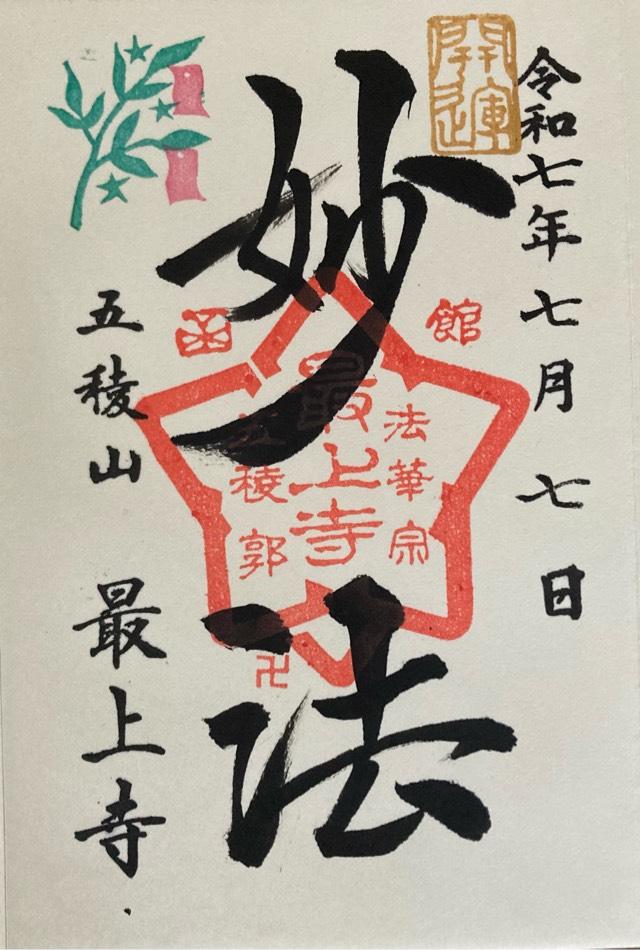 開運
令和七年七月七日
妙法
函館
法華宗
最上寺
五稜郭
卍
五稜山
最上寺